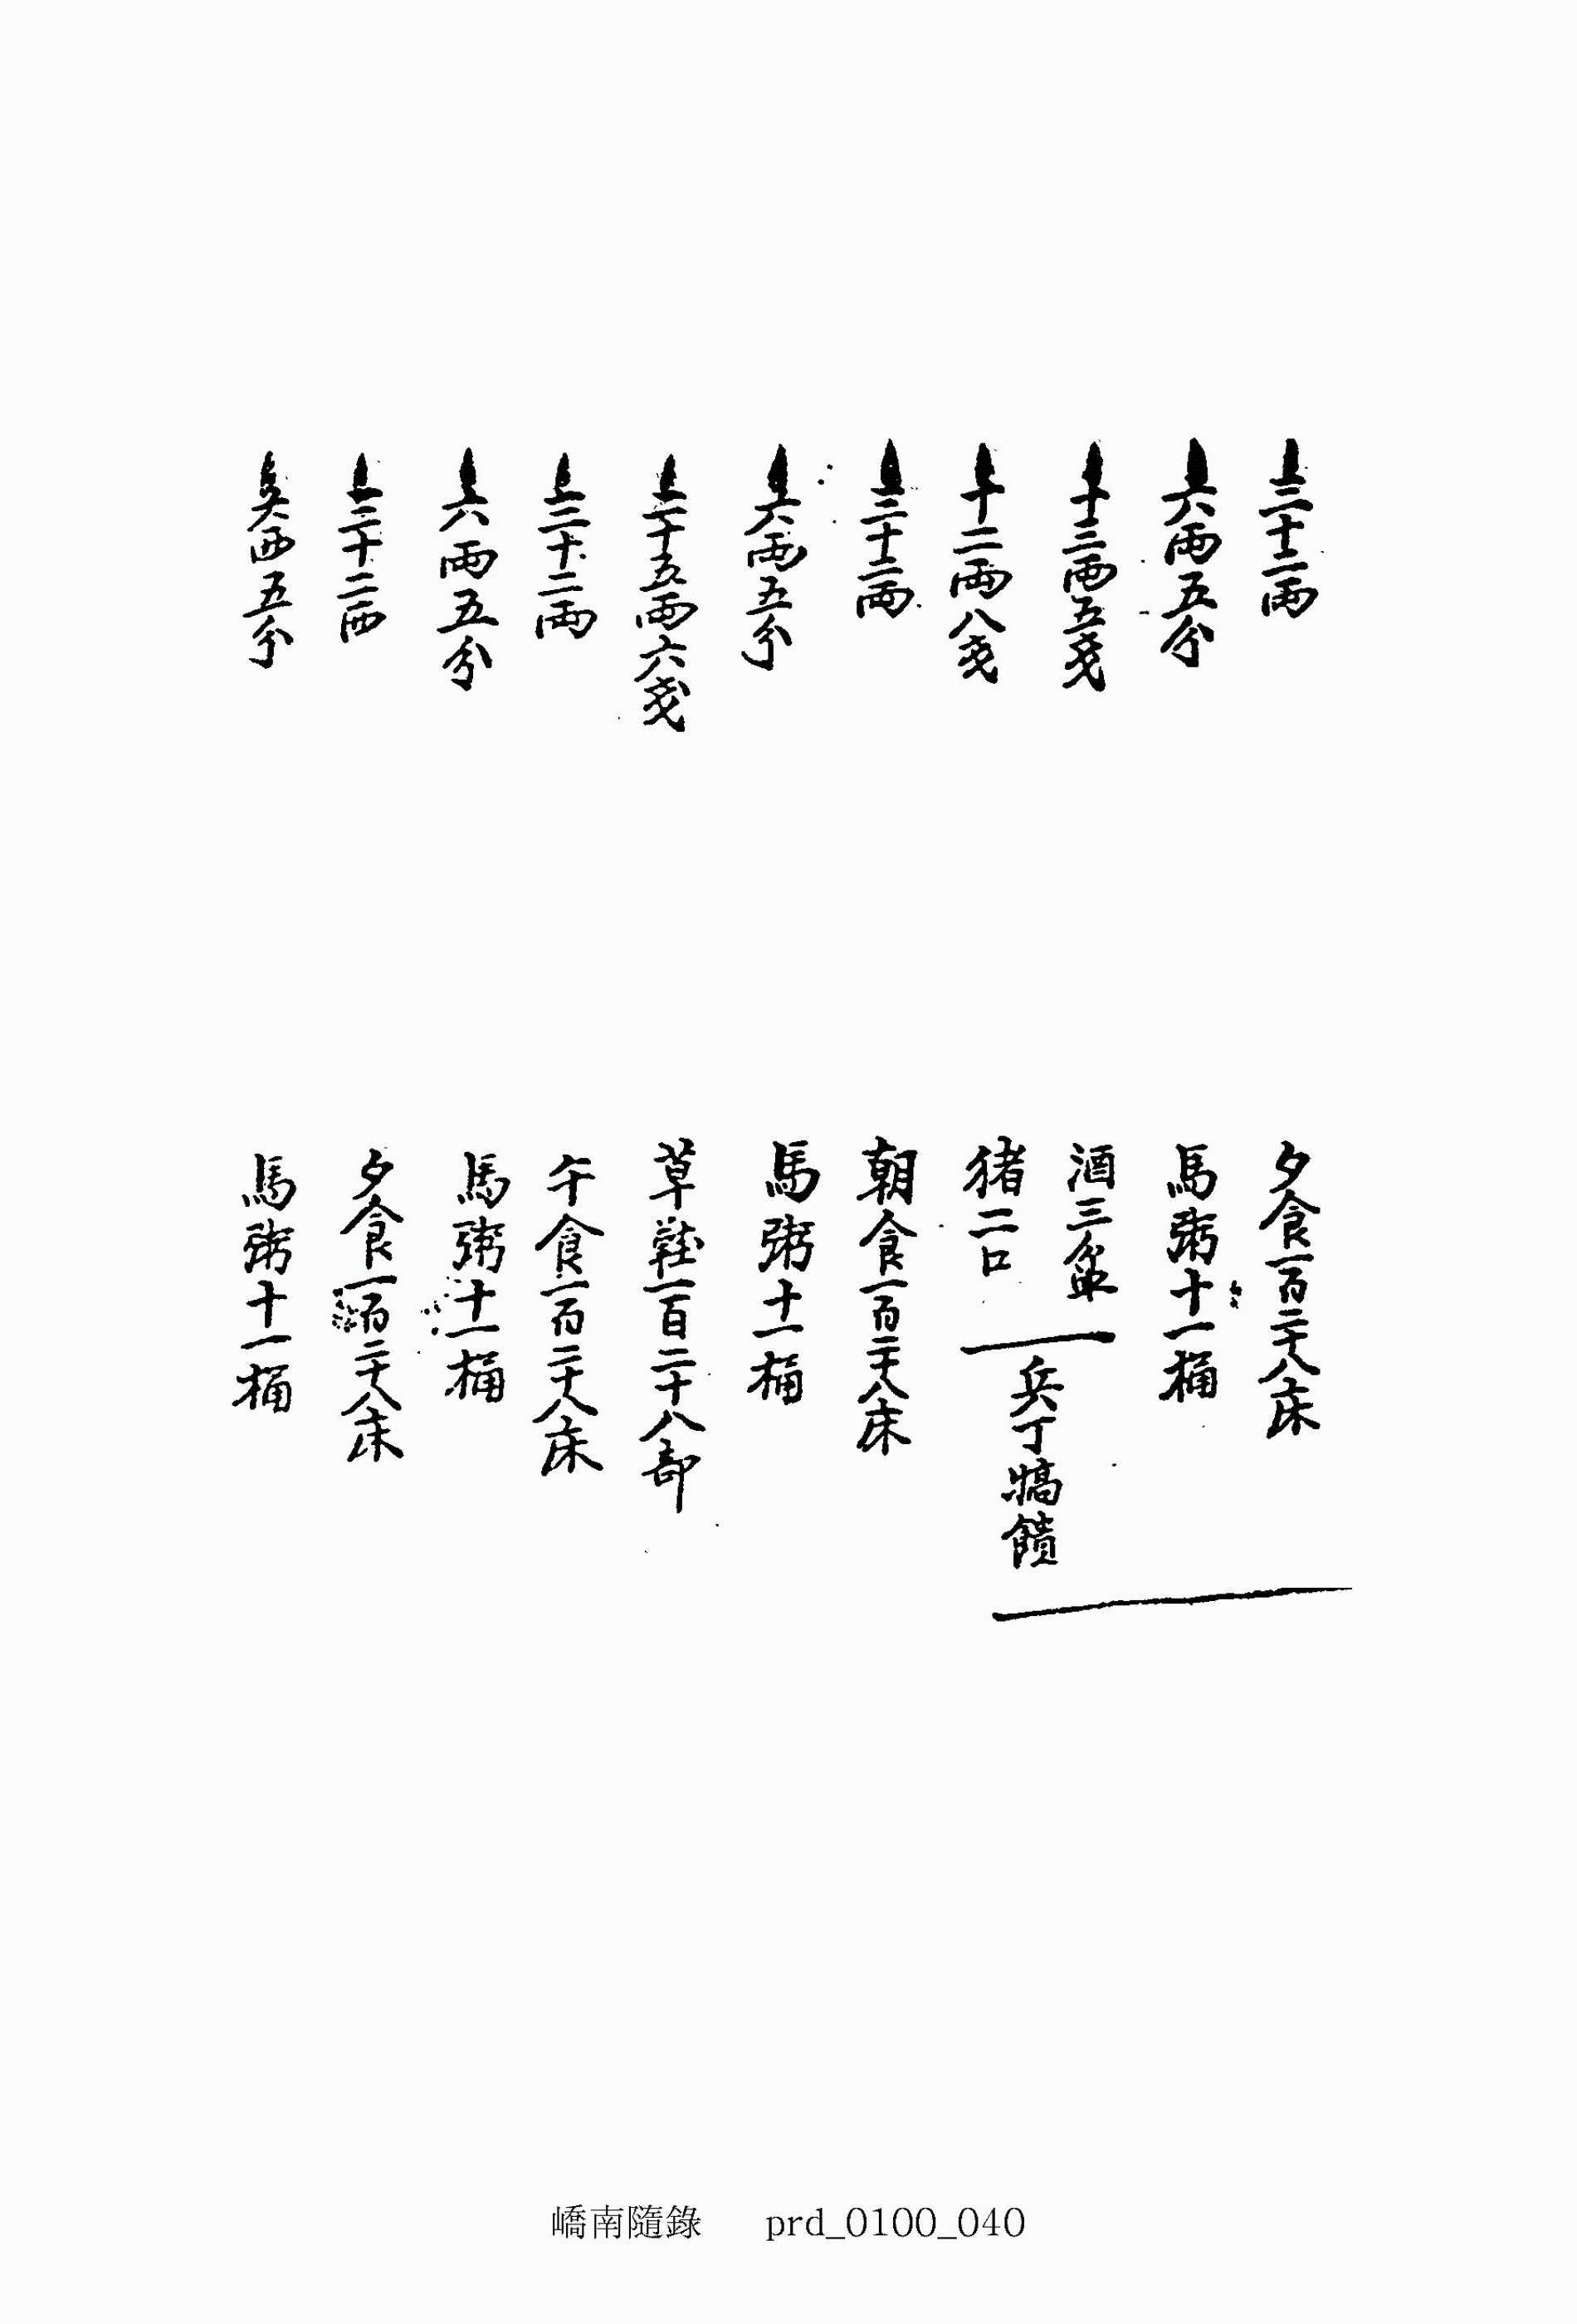 上三十二両 夕食一百二十八床
上六両五分 馬粥十一桶
上十三両五戔 酒三盆
上十二両八戔 猪二口
兵丁犒饋
上三十二両 朝食一百二十八床
上六両五分 馬粥十一桶
上二十五両六戔 草鞋一百二十八部
上三十二両 午食一百二十八床
上六両五分 馬粥十一桶
上三十二両 夕食一百二十八床
上六両五分 馬粥十一桶
嶠南隨錄 prd_0100_040